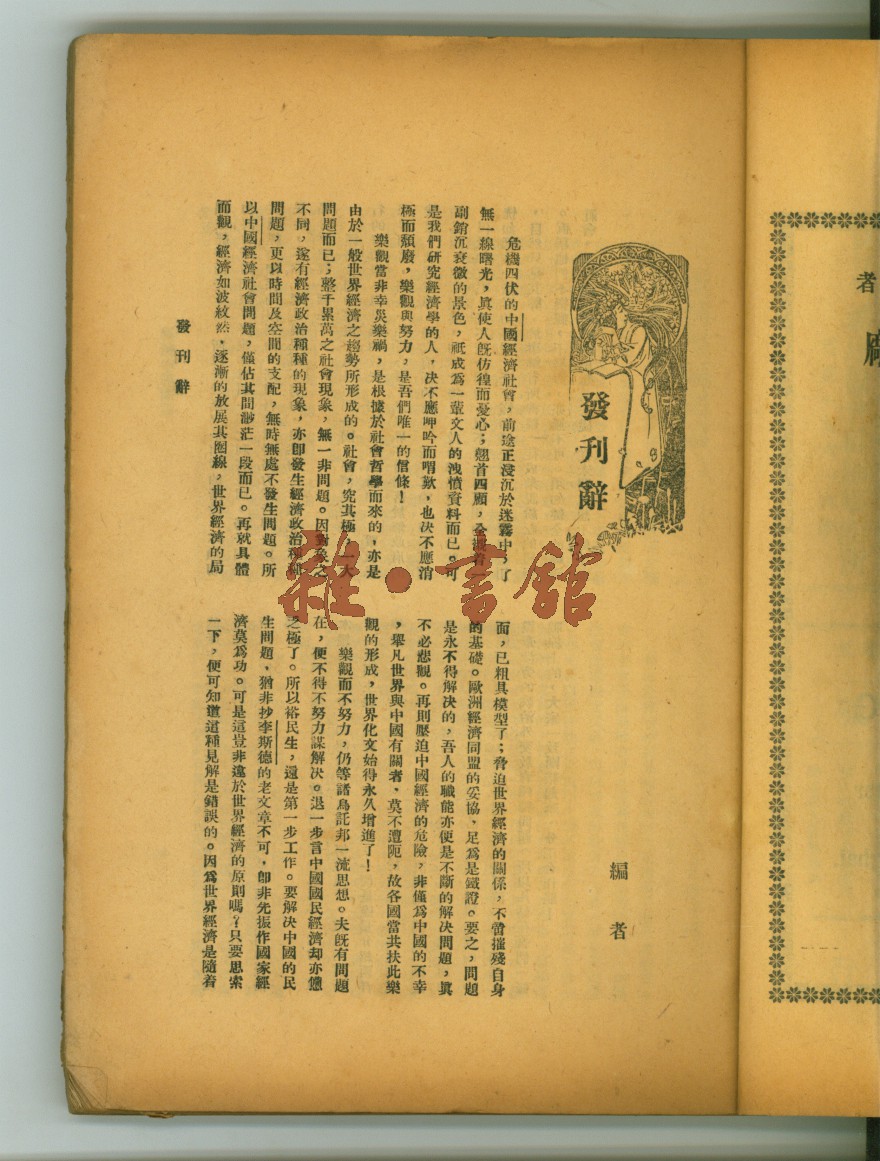 發刊辭
編者
危機四伏的中國經濟社會，前途正浸沉於迷霧中，了
無一線曙光，眞使人旣仿徨而憂心；翹首四顧，全濺着一
副銷沉衰微的景色，祇成爲一輩文人的洩憤資料而已。可
是我們研究經濟學的人，決不應呻吟而喟歎，也決不應消
極而頹廢，樂觀與努力，是吾們唯一的信條！
樂觀當非幸災樂禍，是根據於社會哲學而來的，亦是
由於一般世界經濟之趨勢所形成的。社會，究其極，一大
問題而已；整千累萬之社會現象，無一非問題。因對象之
不同，遂有經濟政治種種的現象，亦卽發生經濟政治種種
問題，更以時間及空間的支配，無時無處不發生問題。所
以中國經濟社會問題，僅佔其間渺茫一段而已。再就具體
而觀，經濟如波紋然，逐漸的放展其圈線，世界經濟的局
面，已粗具模型了；脅迫世界經濟的關係，不啻摧殘自身
的基礎。歐洲經濟同盟的妥協，足爲是鐵證。要之，問題
是永不得解決的，吾人的職能亦便是不斷的解決問題，眞
不必悲觀。再則壓迫中國經濟的危險，非僅爲中國的不幸
，舉凡世界與中國有關者，莫不遭阨，故各國當共扶此樂
觀的形成，世界化文始得永久增進了！
樂觀而不努力，仍等諸烏託邦一流思想。夫旣有問題
在，便不得不努力謀解決。退一步言中國國民經濟却亦憊
之極了。所以裕民生，還是第一步工作。要解決中國的民
生問題，猶非抄李斯德的老文章不可，卽非先振作國家經
濟莫爲功。可是這豈非違於世界經濟的原則嗎？只要思索
一下，便可知道這種見解是錯誤的。因爲世界經濟是隨着
發刊辭
雜·書館
者